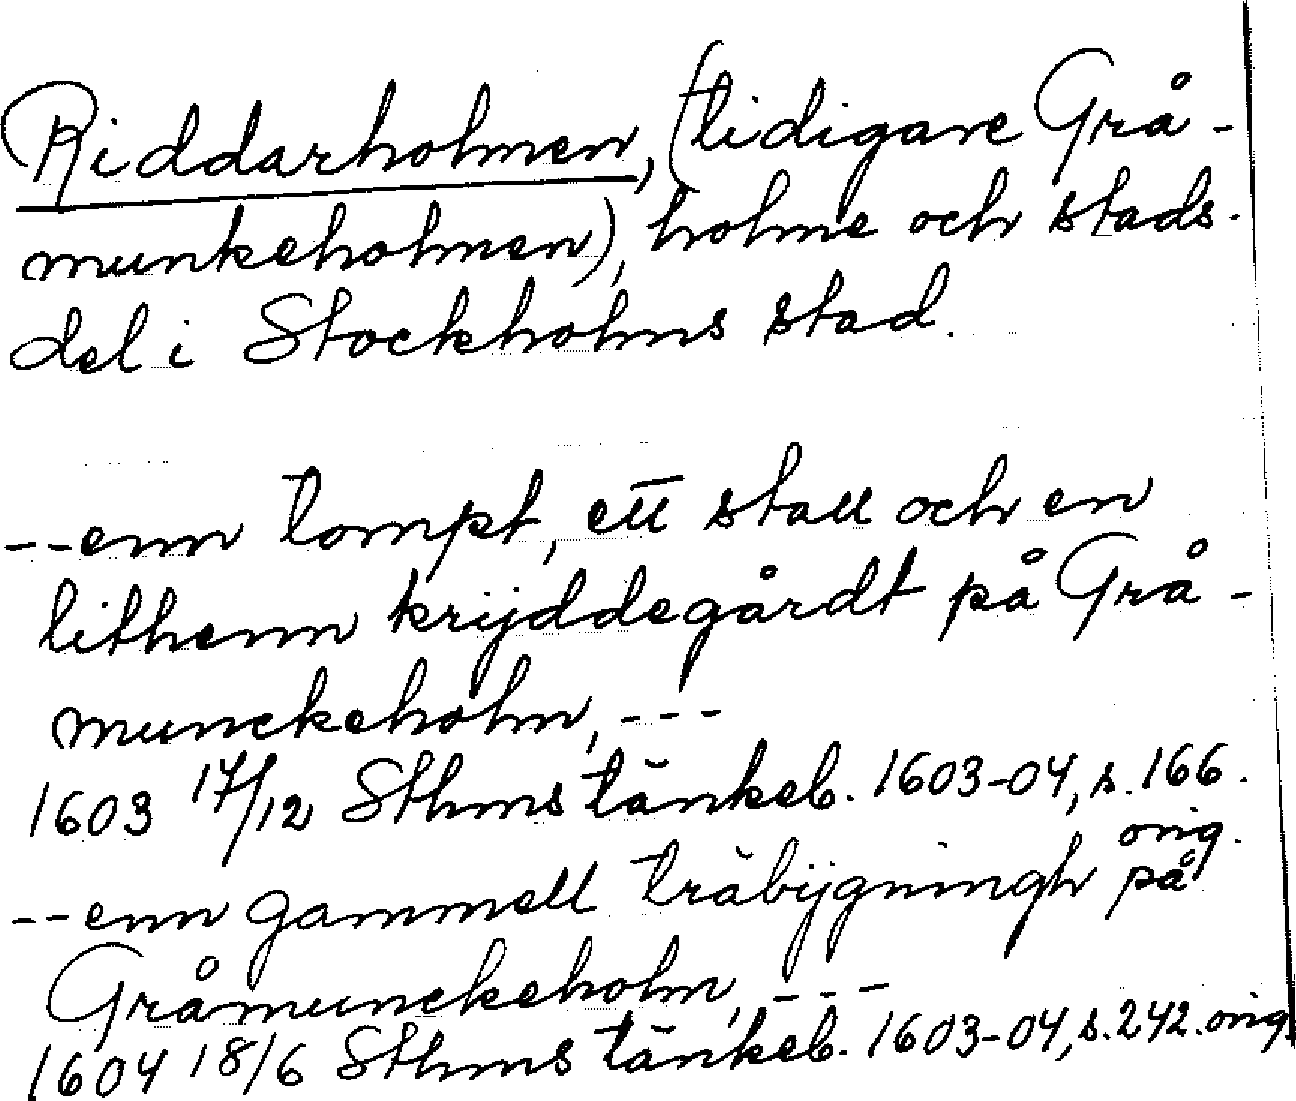 Riddarholmen, (tidigare Grå-
munkeholmen), holme och stads-
del i Stockholms stad.
--enn tompt, ett stall och en
lithenn krijddegårdt på Grå-
munckeholm, ---
1603 17/12 Sthms tänkeb. 1603-04, s. 166.
orig.
--enn gammell träbijgningh på
Gråmunckeholm, ---
1604 18/6 Sthms tänkeb. 1603-04, s. 242. orig.